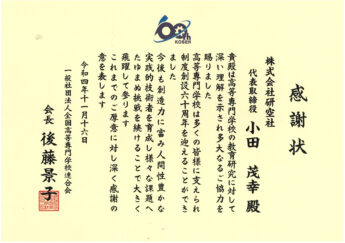 60th
KOSEN
感謝状
株式会社研空社
代表取締役 小田 茂幸 殿
貴殿は高等専門学校の教育研究に対して
深い理解を示され多大なるご協力を
賜りました
高等専門学校は多くの皆様に支えられ
制度創設六十周年を迎えることができ
ました
今後も創造力に富み人間性豊かな
実践的技術者を育成し様々な課題へ
たゆまぬ挑戦を続けることで大きく
飛躍して参ります
これまでのご厚意に対し深く感謝の
意を表します
令和四年十一月十六日
一般社団法人全国高等専門学校連合会
会長 後藤景子